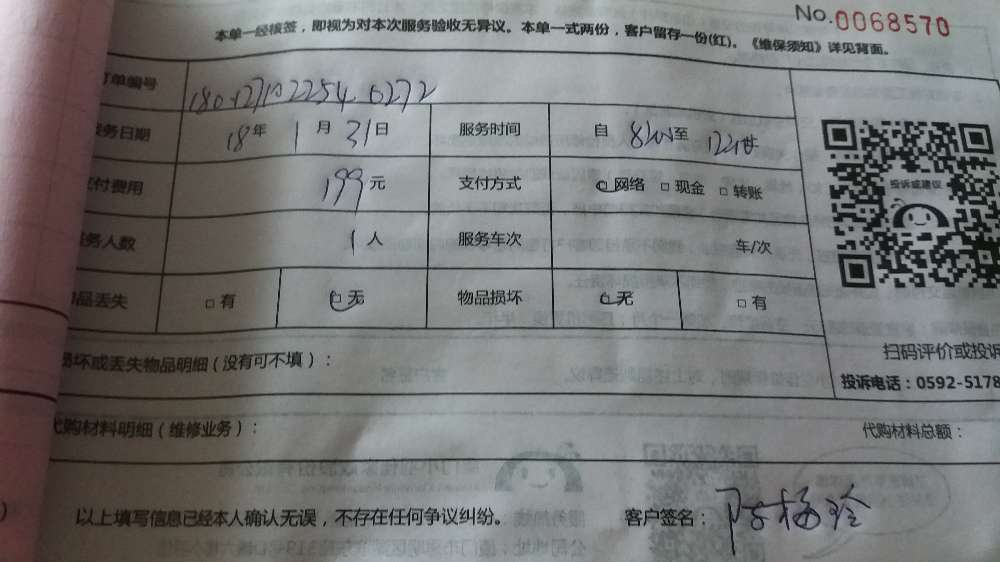 No.0068570
本单一经核签，即视为对本次服务验收无异议。本单一式两份，客户留存一份(红)。《维保须知》详见背面。
订单编号
服务日期 18年 1月 31日 服务时间 自 至
支付费用 199元 支付方式 网络 □现金 □转账
服务人数 1人 服务车次 车/次
物品丢失 □有 无 物品损坏 无 □有
投诉或建议
损坏或丢失物品明细（没有可不填）：
扫码评价或投诉
投诉电话：0592-5178
代购材料明细（维修业务）： 代购材料总额：
以上填写信息已经本人确认无误，不存在任何争议纠纷。 客户签名：